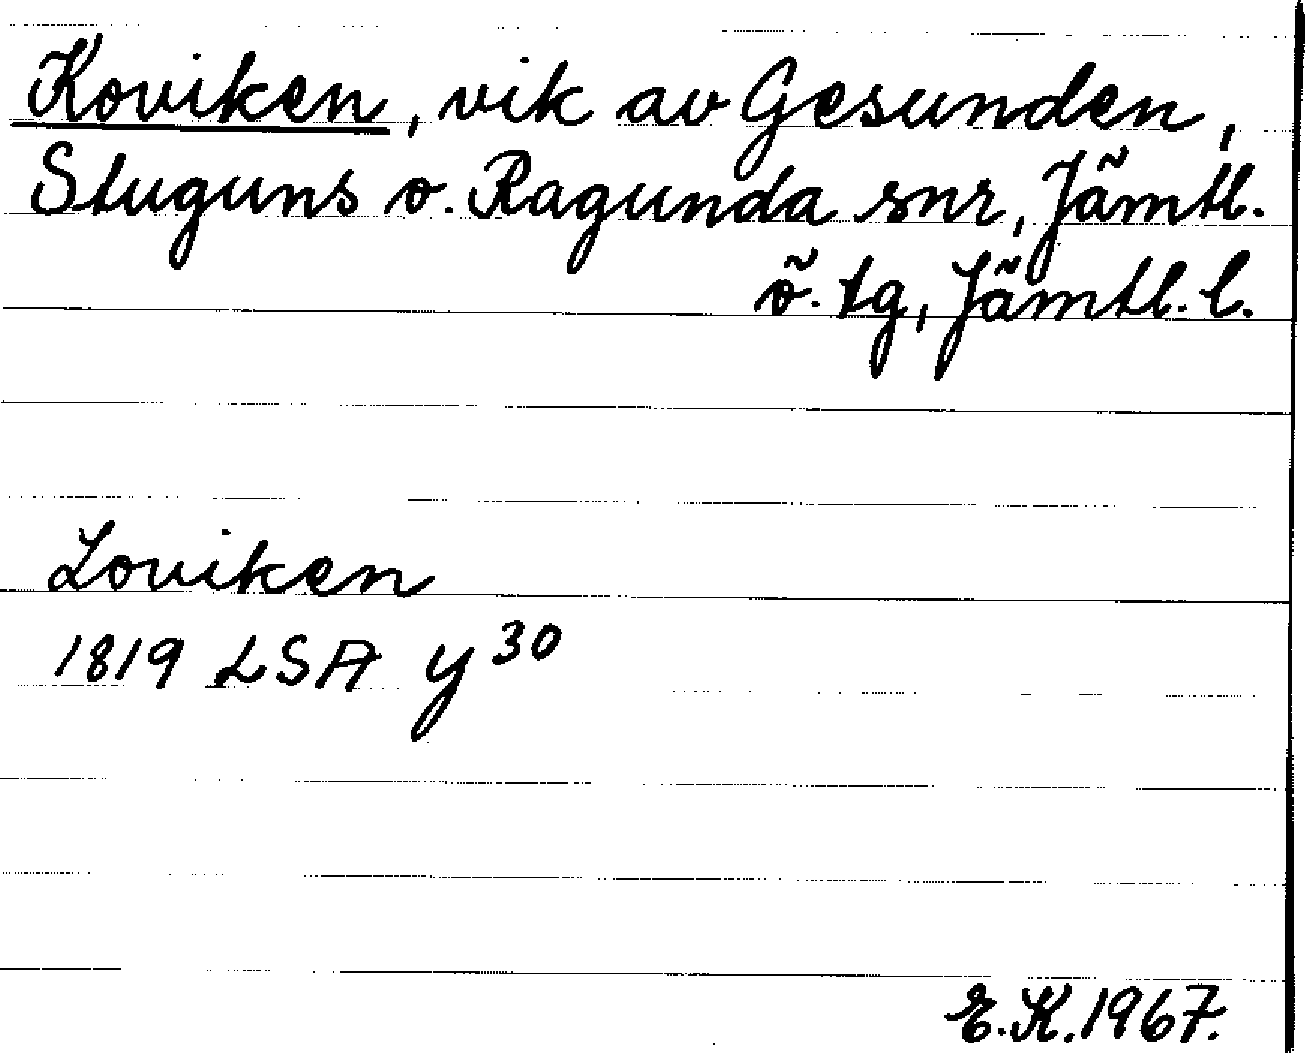 Koviken, vik av Gesunden,
Stuguns o. Ragunda snr, Jämtl.
ö. tg, Jämtl. l.
Loviken
1819 LSA y 30
E.K. 1967.